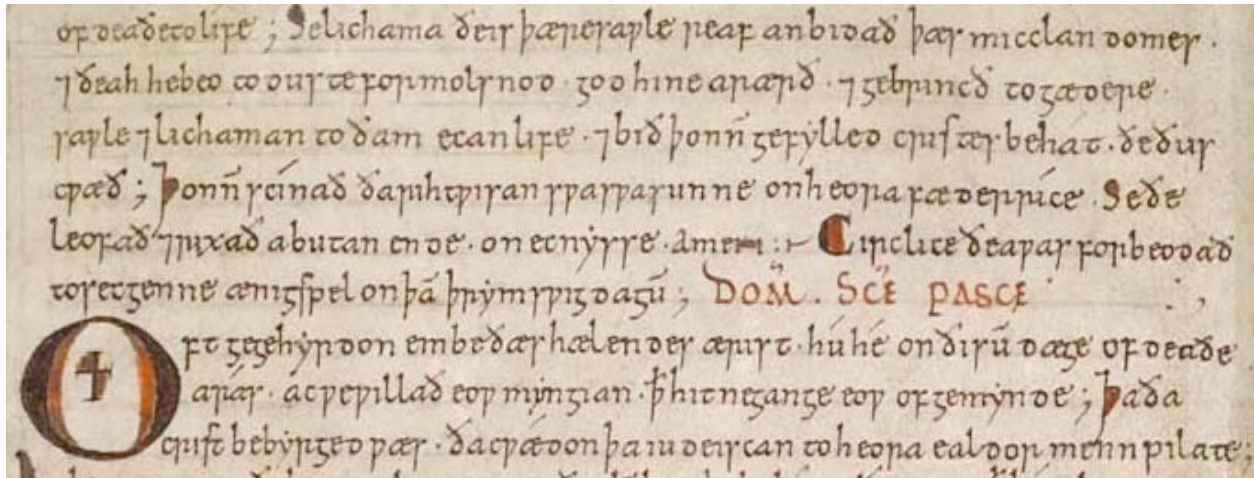 of deaðe to life ; Se lichama ðe is þære sawle reaf anbidað þæs micclan domes .
⁊ ðeah he beo to duste formolsnod · god hine arærð · ⁊ gebrincð togædere ·
sawle ⁊ lichaman to ðam ecan life · ⁊ bið þonn̄ gefylled cristes behát · ðe ðus
cwæð ; Þonn̄ scínað ða rihtwisan swa swa sunne on heora fæder ríce · Se ðe
leofað ⁊ rixað a butan ende · on ecnysse · Amen : Circlice ðeawas forbeodað
to secgenne ænig spel on þā þrym swigdagū ; DOM̄ . SC̄E PASCE
Oft ge gehyrdon embe ðæs hælendes ærist · hú hé on ðisū dæge of deaðe
arás · ac we willað eow myngian · ꝥ hit ne gange eow of gemynde ; Þa ða
crist bebyrged wæs · ða cwædon þa iudeiscan to heora ealdormenn pilate ;